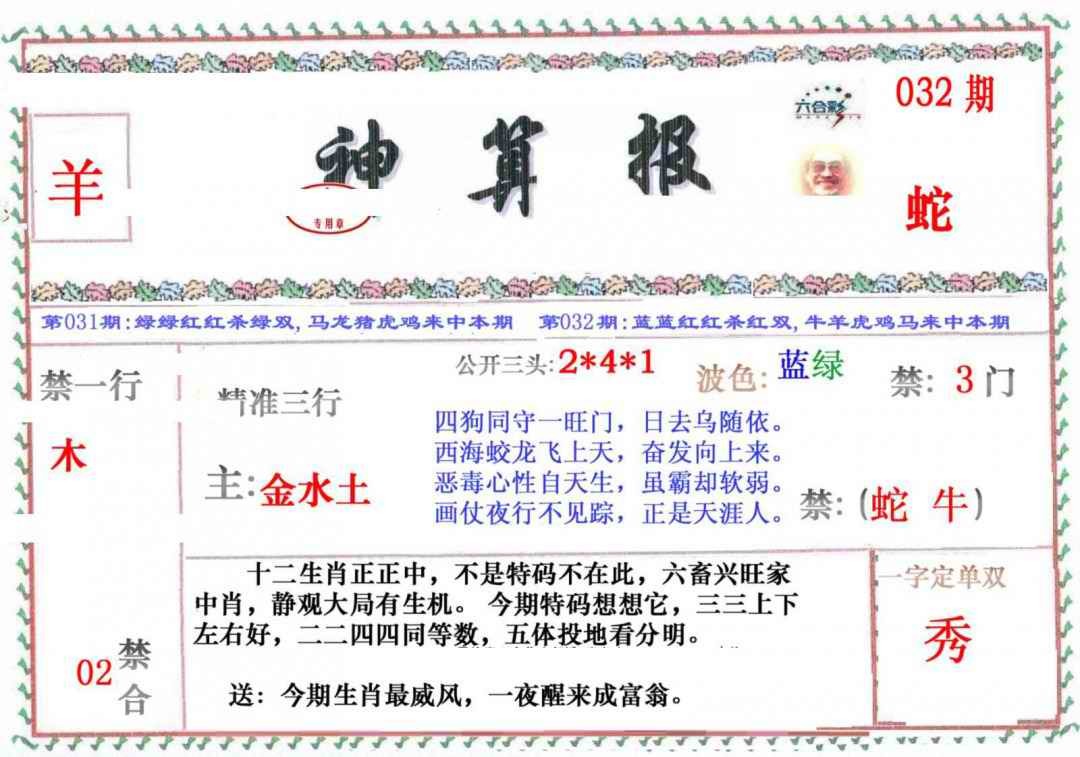 032 期
六合彩
羊
神算报
专用章
蛇
第031期:绿绿红红杀绿双,马龙猪虎鸡来中本期 第032期:蓝蓝红红杀红双,牛羊虎鸡马来中本期
公开三头:2*4*1
波色:蓝绿
禁:3门
禁一行
木
精准三行
主:金水土
四狗同守一旺门，日去乌随依。
西海蛟龙飞上天，奋发向上来。
恶毒心性自天生，虽霸却软弱。
画仗夜行不见踪，正是天涯人。
禁:(蛇 牛)
十二生肖正正中，不是特码不在此，六畜兴旺家
中肖，静观大局有生机。 今期特码想想它，三三上下
左右好，二二四四同等数，五体投地看分明。
送：今期生肖最威风，一夜醒来成富翁。
一字定单双
秀
02
禁合